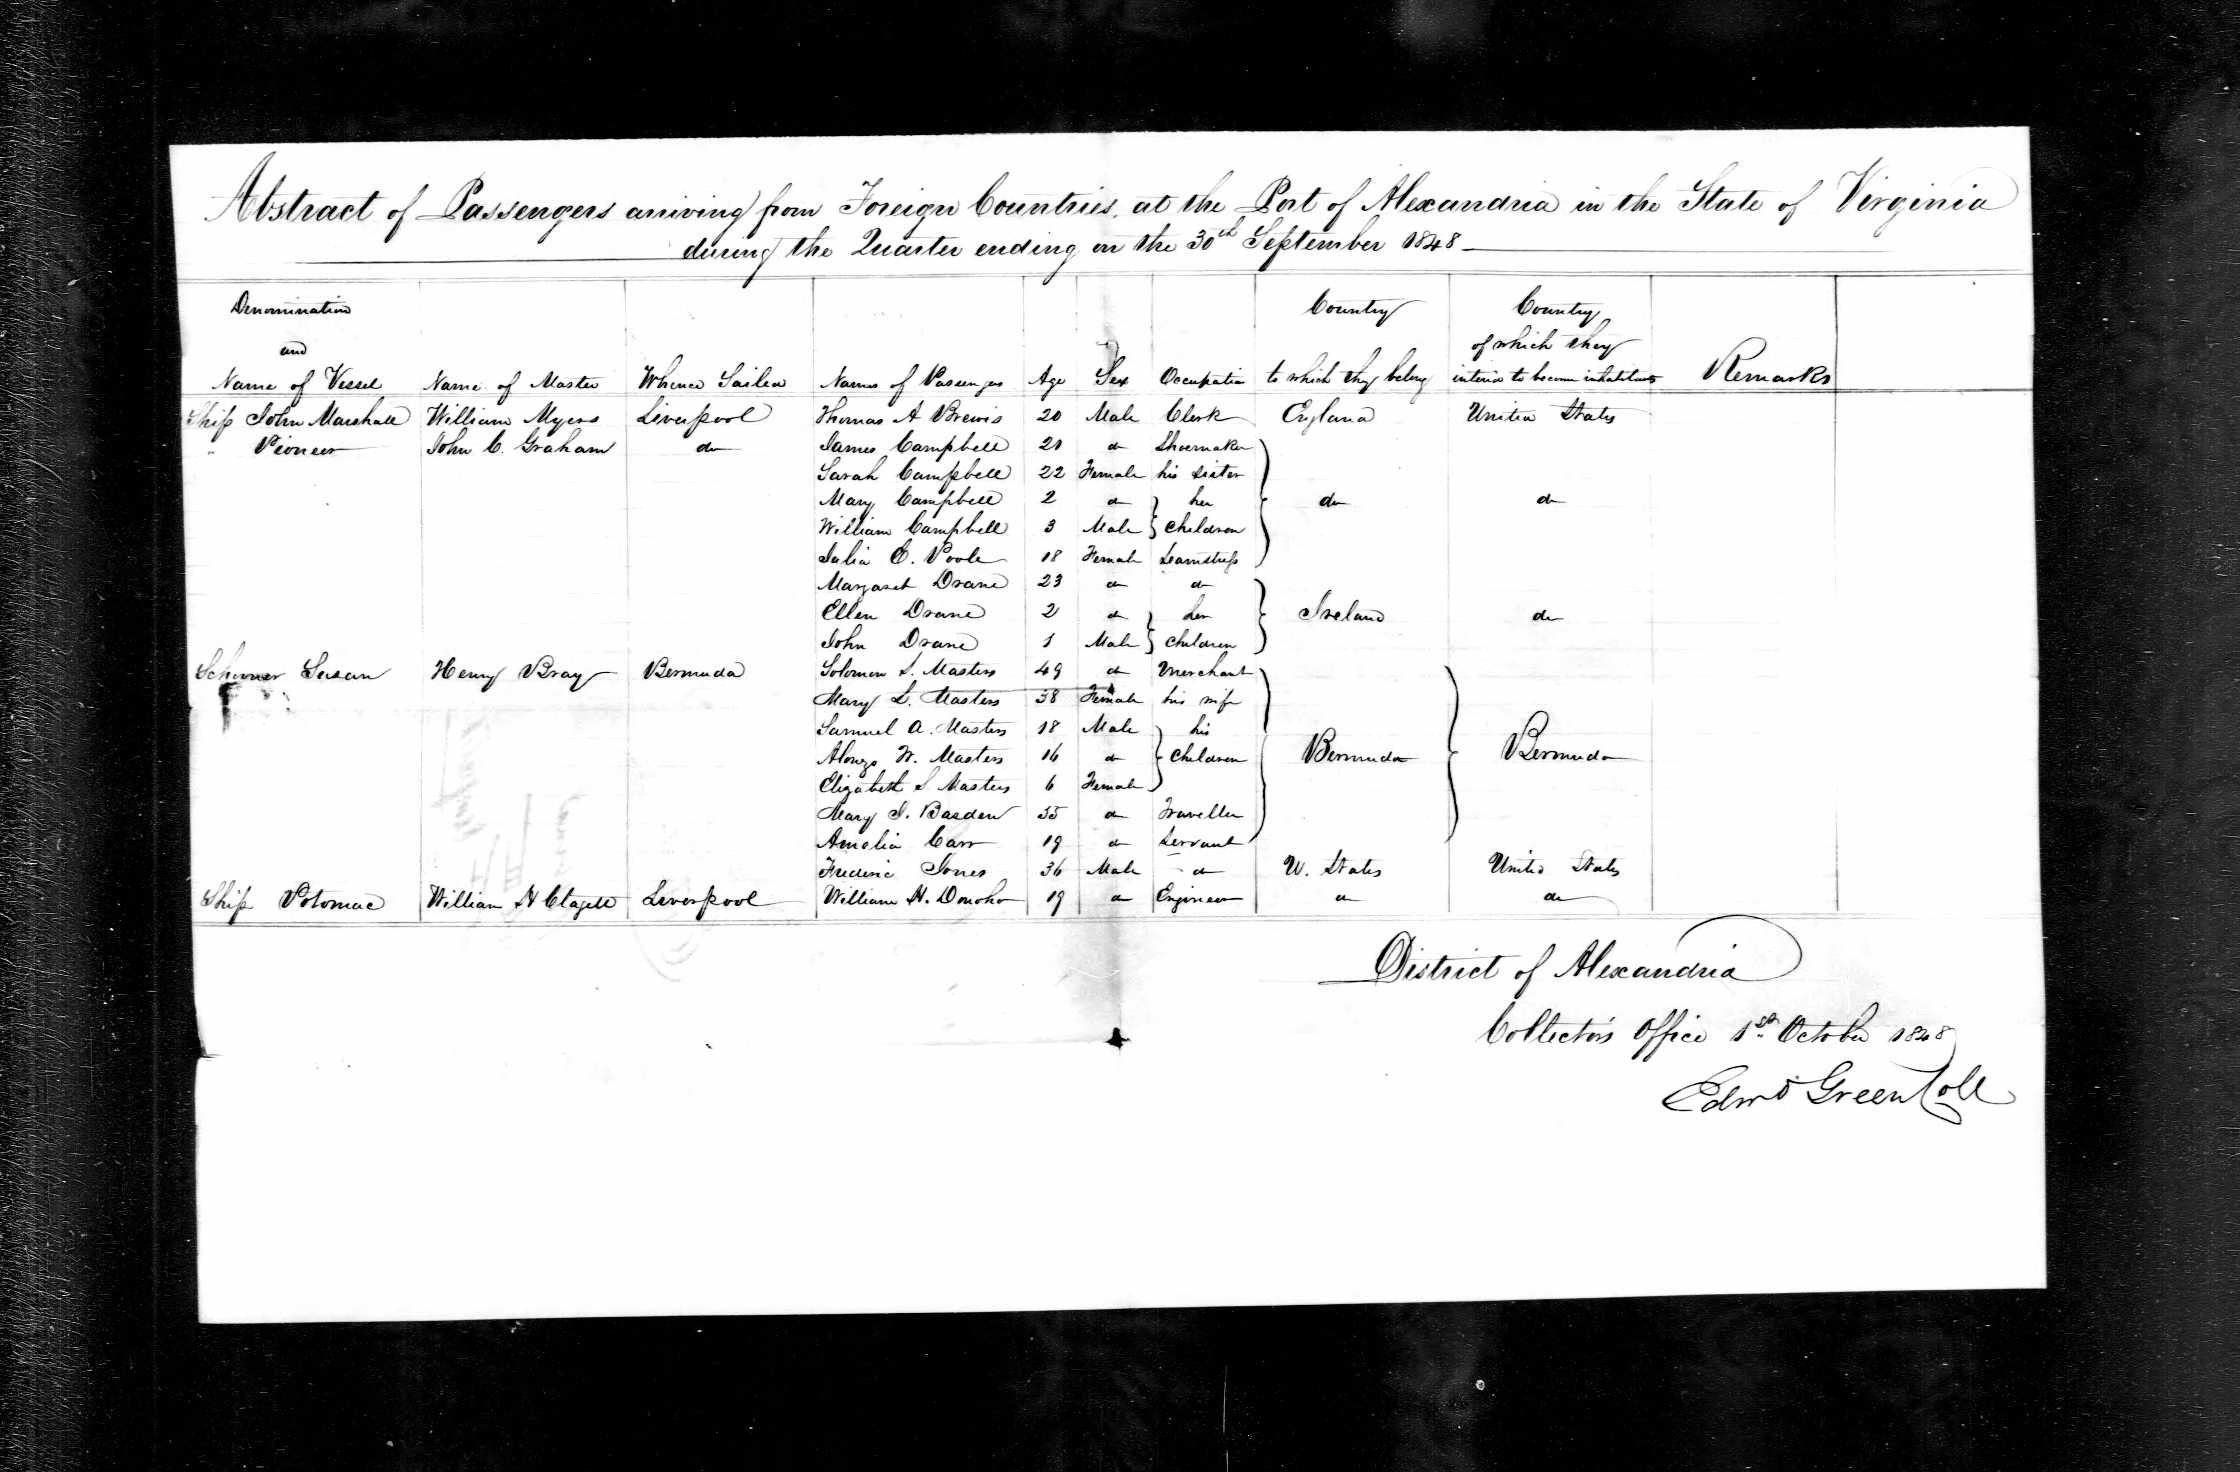 Abstract of Passengers arriving from Foreign Countries, at the Port of Alexandria in the State of Virginia
during the Quarter ending on the 30th September 1848
Denomination and Name of Vessel Name of Master Whence Sailed Names of Passengers Age Sex Occupation Country to which they belong Country of which they intend to become inhabitants Remarks
Ship John Marshall William Myers Liverpool Thomas A Brewis 20 Male Clerk England United States
" Pioneer John C. Graham do James Campbell 20 do Shoemaker
Sarah Campbell 22 Female his sister
Mary Campbell 2 do her do do
William Campbell 3 Male Children
Julia E. Poole 18 Female Seamstress
Margaret Drane 23 do do
Ellen Drane 2 do her Ireland do
John Drane 1 Male Children
Schooner Susan Henry Bray Bermuda Solomon S. Masters 49 do Merchant
Mary L. Masters 38 Female his wife
Samuel A. Masters 18 Male his
Alonzo W. Masters 16 do Children Bermuda Bermuda
Elizabeth S. Masters 6 Female
Mary J. Basden 35 do Traveller
Amelia Carr 19 do Servant
Frederic Jones 36 Male do U. States United States
Ship Potomac William H Clagett Liverpool William H. Donoho 19 do Engineer do do
District of Alexandria
Collector's Office 1st October 1848
Edwd Green Coll